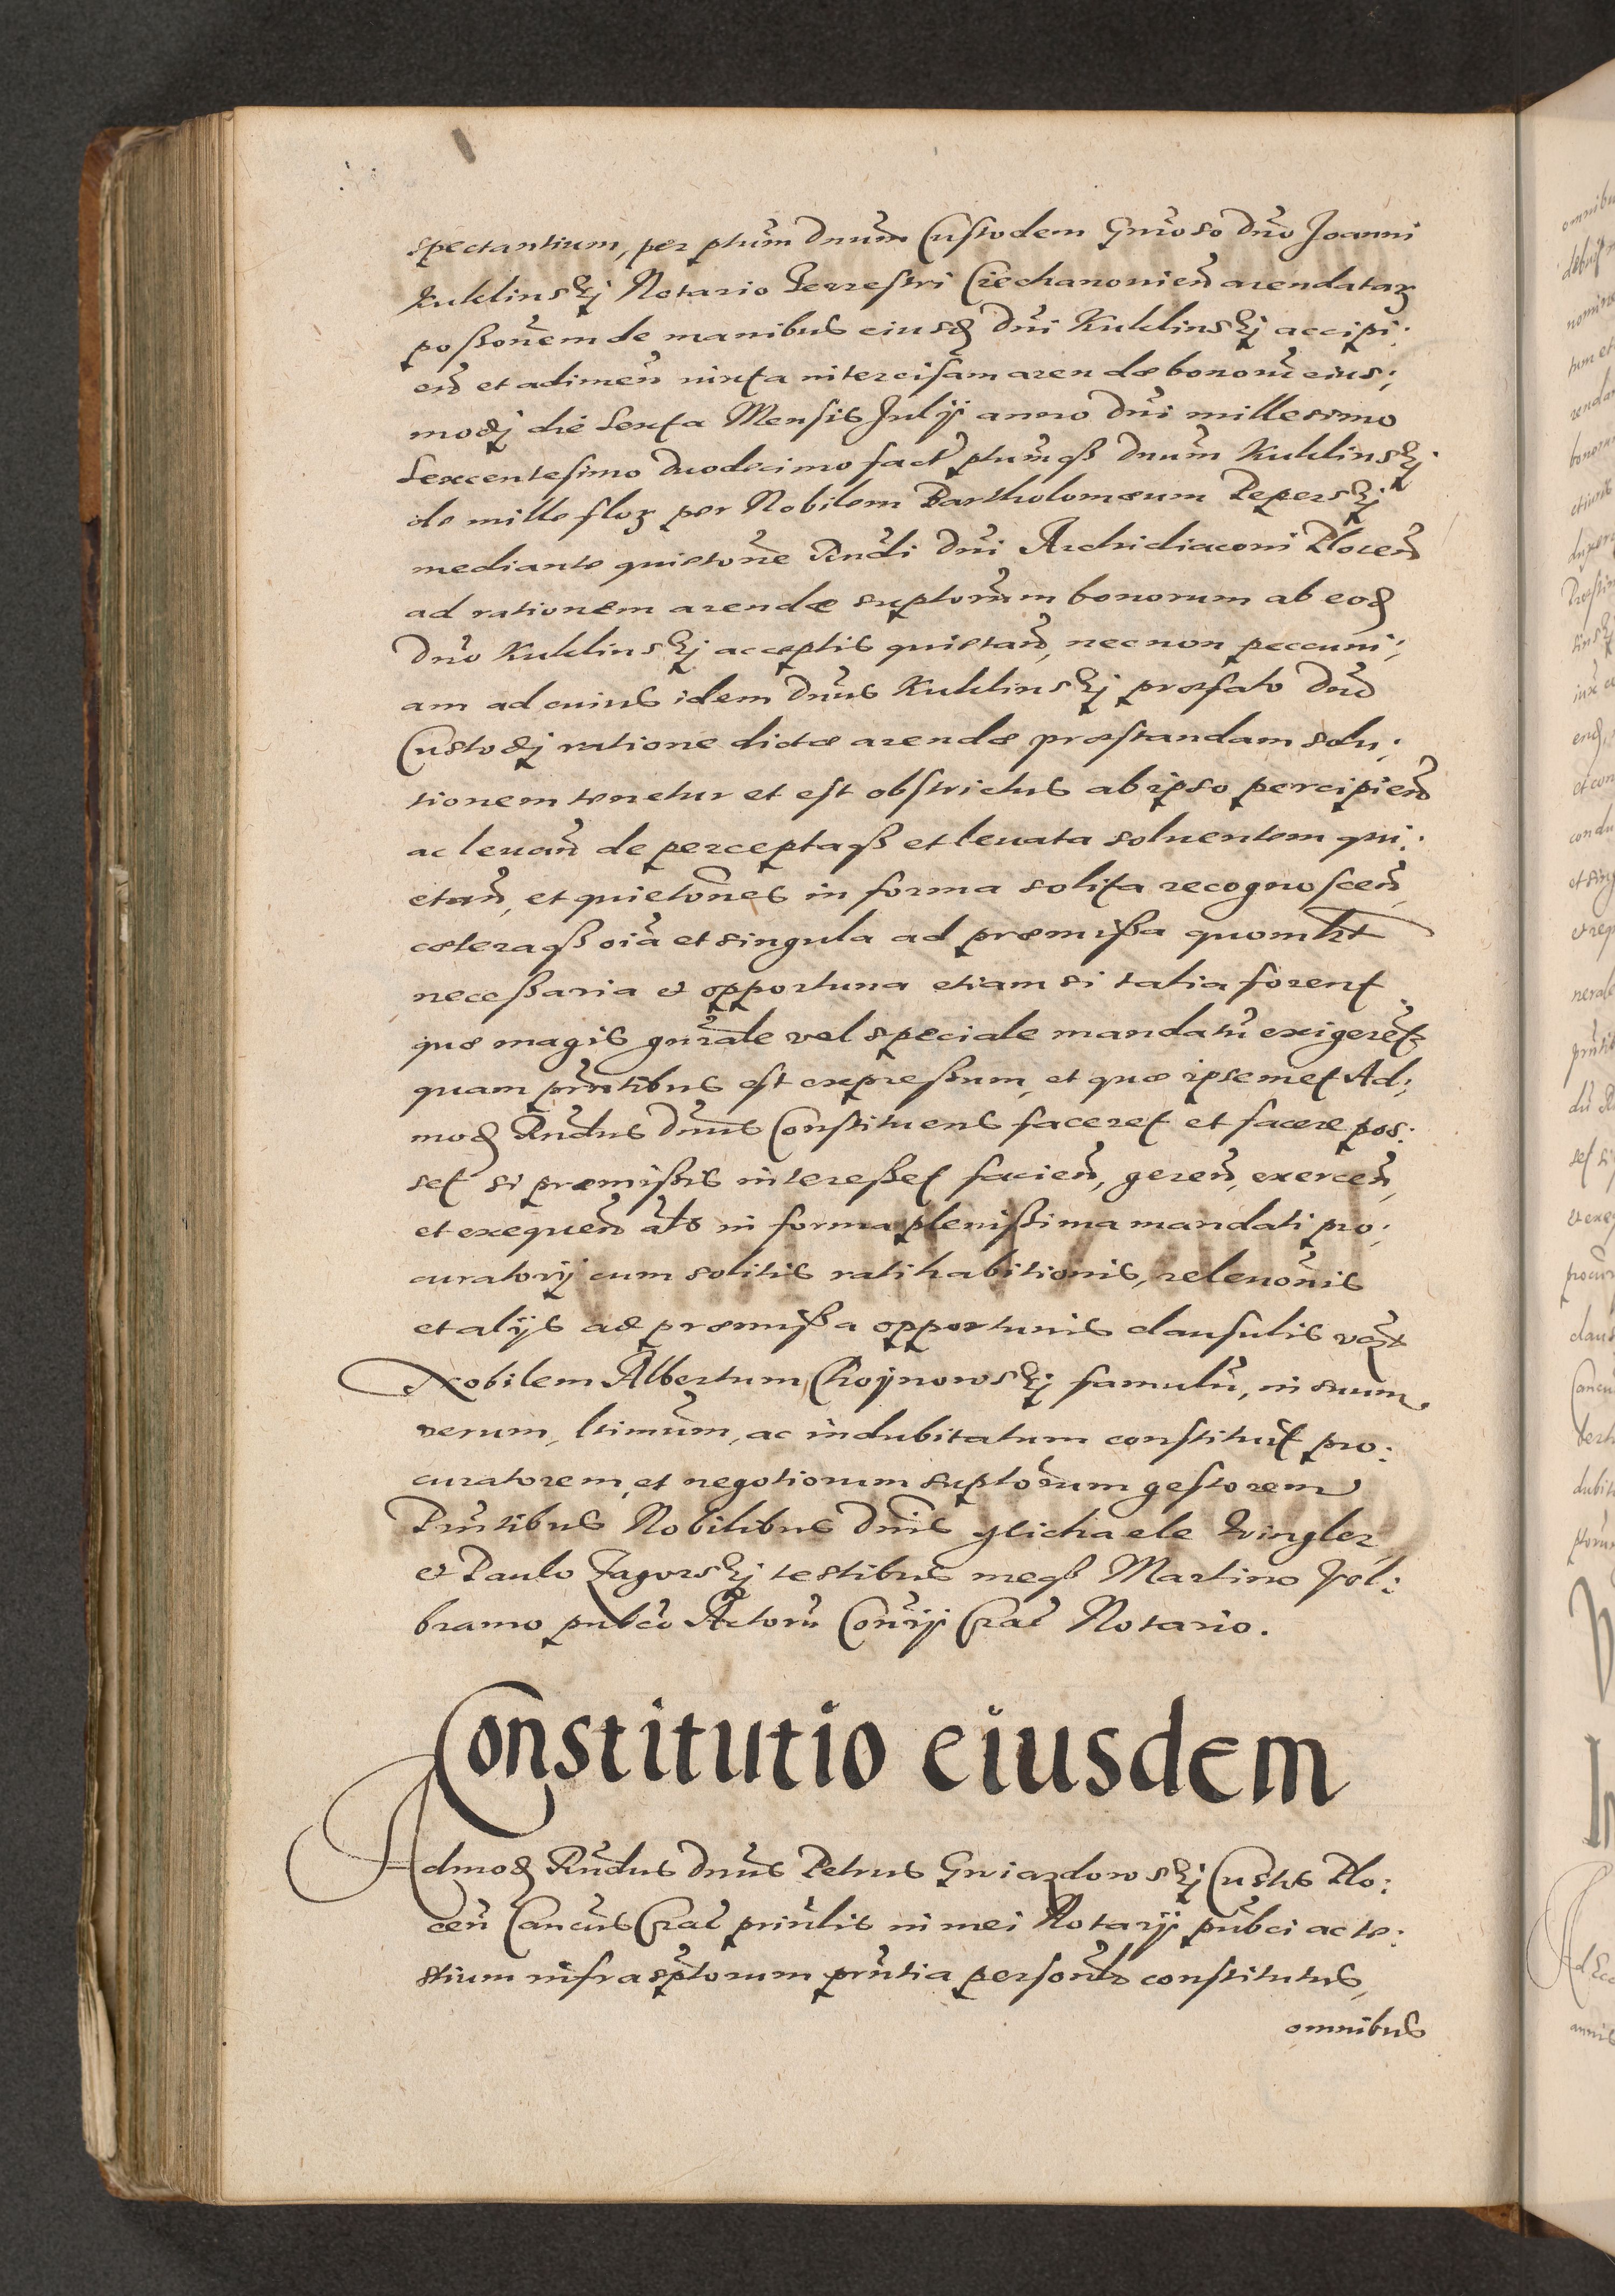 spectantium, per ptum Dnum Custodem Gnroso Dno Joanni
Kuklinskj Notario Terrestri Ciechanonien arendatarum
possonem de manibus eiusd Dni Kuklinskj accipi:
en et adimen iuxta intercisam arendæ bonorum eius:
modj die Sexta Mensis Julij anno Dni millesimo
Sexcentesimo duodecimo fact ptumq Dnum Kuklinskj
de mille flor per Nobilem Bartholomæum Peperskj
mediante quietone Rndi Dni Archidiaconi Plocen
ad rationem arendæ suptorum bonorum ab eod
Dno Kuklinskj acceptis quietan, nec non peccuni:
am ad cuius idem Dnus Kuklinskj præfato Dno
Custodj ratione dictæ arendæ præstandam solu:
tionem tenetur et est obstrictus ab ipso percipien
ac levan de perceptaq et levata solventem qui:
etan, et quietones in forma solita recognoscen,
cæteraq oia et singula ad præmissa quomlt
necessaria et opportuna etiam si talia forent
quæ magis gnrale vel speciale mandatu exigeret
quam pntibus est expressum, et quæ ipsemet Ad:
mod Rndus Dnus Constituens faceret et facere pos:
set si præmissis interesset facien, geren, exercen,
et exequen alo in forma plenissima mandati pro:
curatorij cum solitis ratihabitionis, relevonis
et alijs ad præmissa opportunis clausulis
Nobilem Albertum Choynowskj famulu, in suum
verum, ltimum, ac indubitatum constituit pro:
curatorem, et negotiorum suptorum gestorem
Pntibus Nobilibus Dnis Michaele
et Paulo Zagorskj testibus meq Martino Jsl:
bramo pubco Actoru Consrij Crac Notario.
Constitutio eiusdem
Admod Rndus Dnus Petrus Gwiazdowskj Custos Plo:
cen Cancus Crac prinlis in mei Notarij pubci ac te:
stium infrasptorum pntia personlr constitutus,
omnibus